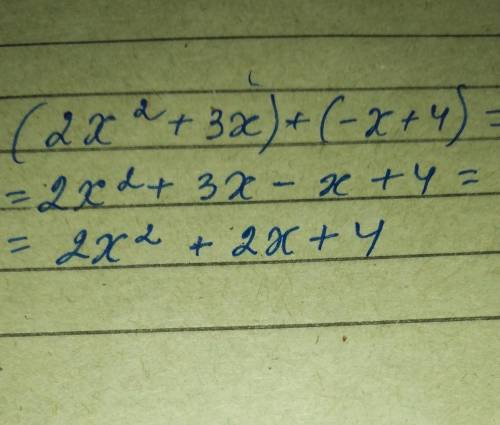 (2x² + 3x) + (-x + 4) =
= 2x² + 3x - x + 4 =
= 2x² + 2x + 4